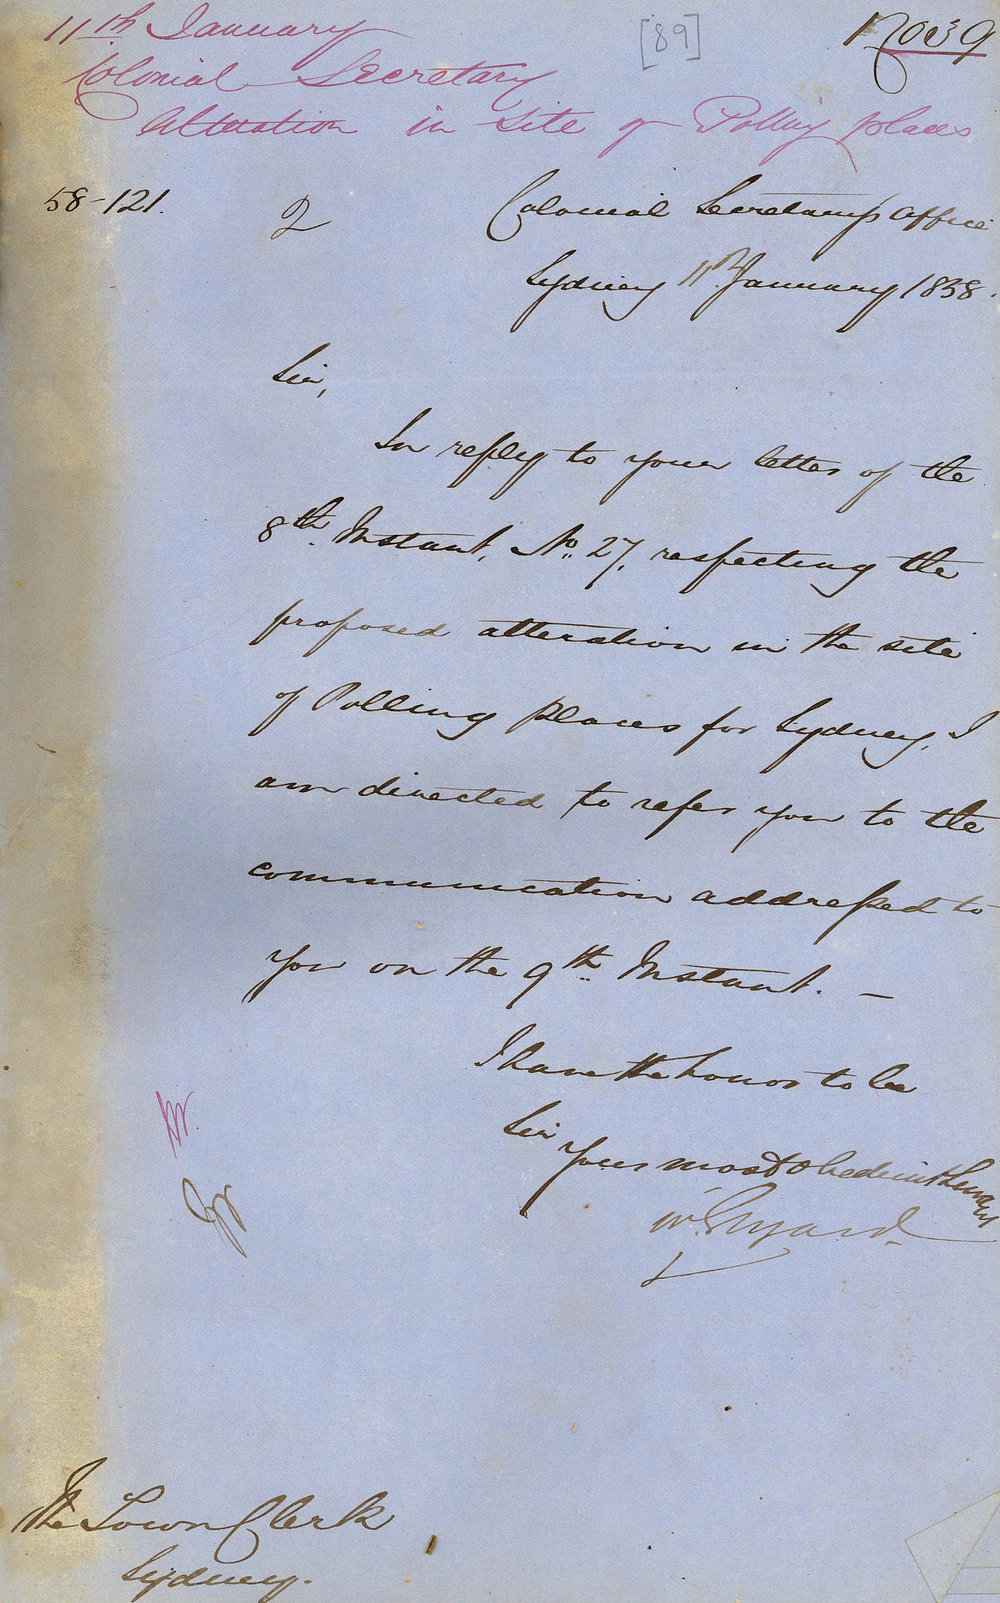 11th January
[89]
No 39
Colonial Secretary
Alteration in Site of Polling places
58-121.
2
Colonial Secretary's Office
Sydney 11th January 1858.
Sir,
In reply to your letter of the
8th Instant, No. 27, respecting the
proposed alteration in the site
of Polling Places for Sydney, I
am directed to refer you to the
communication addressed to
you on the 9th Instant. —
I have the honor to be
Sir
Your most obedient Servant
W. Elyard
The Town Clerk
Sydney.